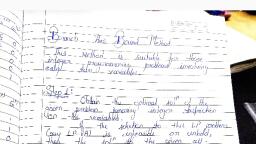 Branch And Bound Method
This Method is suitable for those
integer programming problems involving
only two variables.
Step 1:
Obtain the optimal solⁿ of the
given problem ignoring integer restriction
on the variables.
If the solution to this LP problem
is or
then the solⁿ to the given